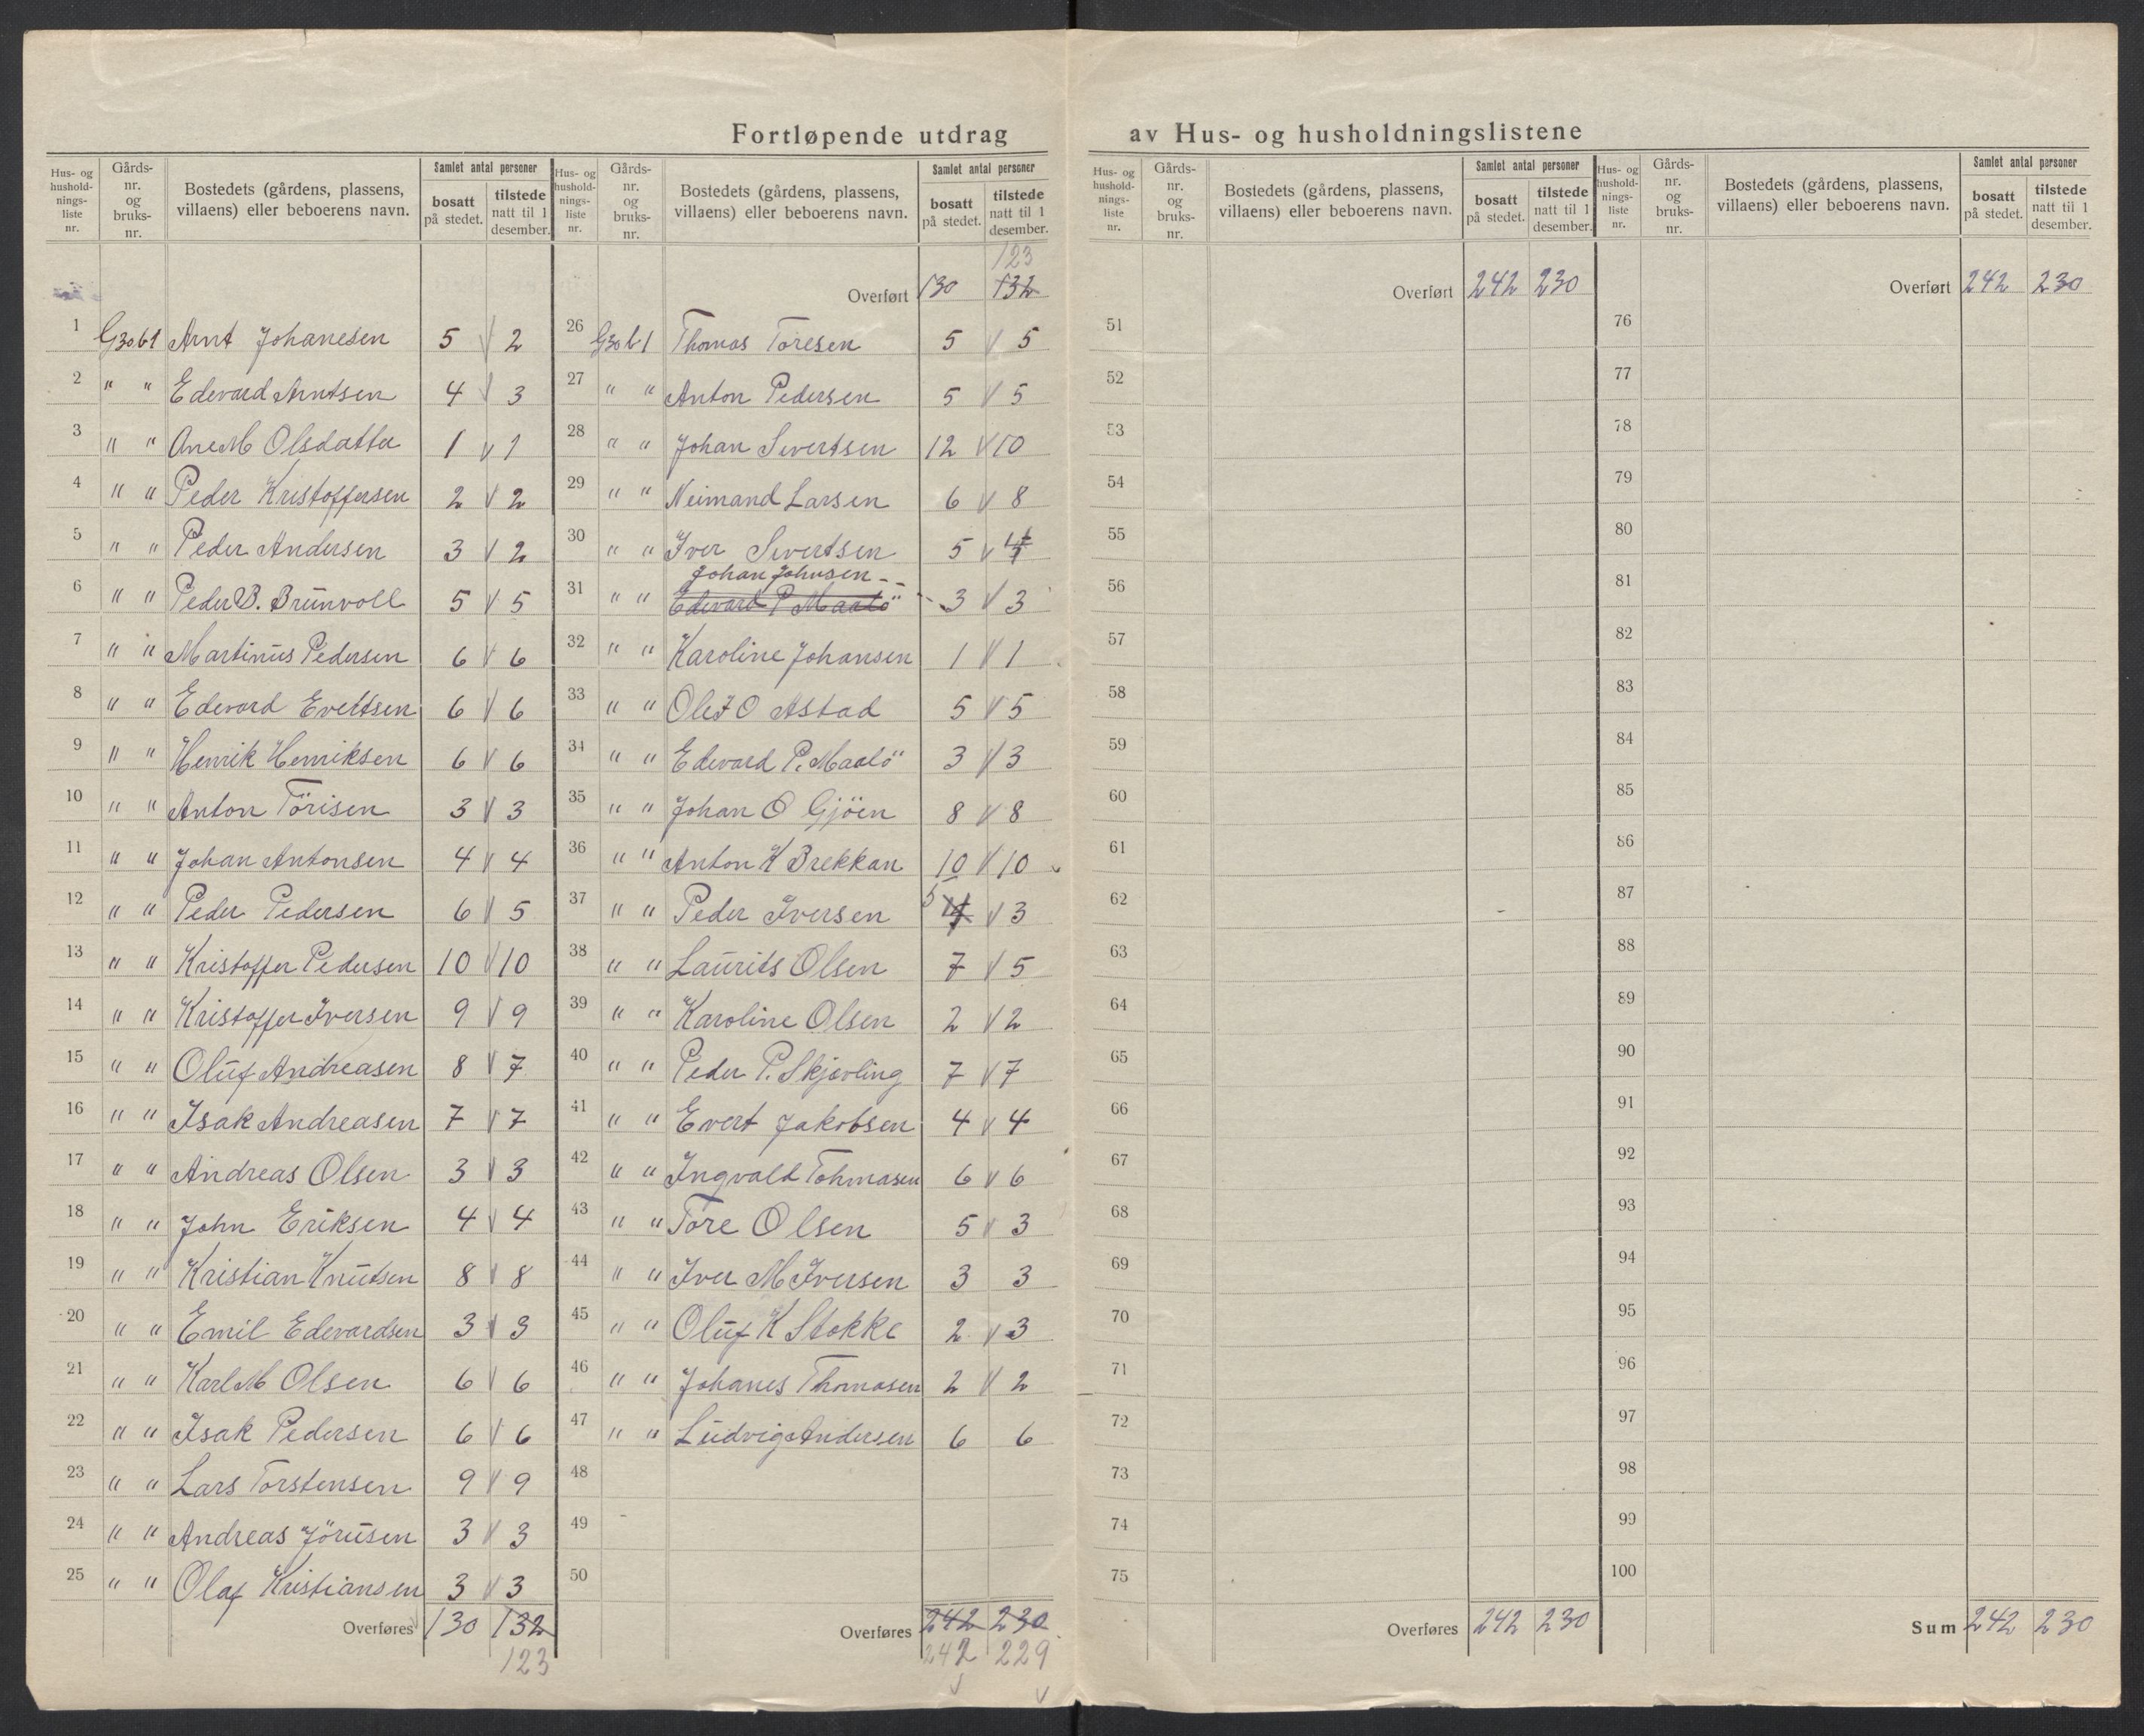 Fortløpende utdrag av Hus- og husholdningslistene
Hus- og hushold-nings-liste nr. | Gårds-nr. og bruks-nr. | Bostedets (gårdens, plassens, villaens) eller beboerens navn. | Samlet antal personer | bosatt på stedet. | tilstede natt til 1 desember.
1 G30 b1 Arnt Johanesen 5 V 2
2 " " Edevard Arntsen 4 V 3
3 " " Ane M Olsdatter 1 V 1
4 " " Peder Kristoffersen 2 V 2
5 " " Peder Andersen 3 V 2
6 " " Peder B. Brunvoll 5 V 5
7 " " Martinus Pedersen 6 V 6
8 " " Edevard Evertsen 6 V 6
9 " " Henrik Henriksen 6 V 6
10 " " Anton Törisen 3 V 3
11 " " Johan Antonsen 4 V 4
12 " " Peder Pedersen 6 V 5
13 " " Kristoffer Pedersen 10 V 10
14 " " Kristoffer Iversen 9 V 9
15 " " Oluf Andreasen 8 V 7
16 " " Isak Andreasen 7 V 7
17 " " Andreas Olsen 3 V 3
18 " " John Eriksen 4 V 4
19 " " Kristian Knutsen 8 V 8
20 " " Emil Edevardsen 3 V 3
21 " " Karl M Olsen 6 V 6
22 " " Isak Pedersen 6 V 6
23 " " Lars Torstensen 9 V 9
24 " " Andreas 3 V 3
25 " " Olaf Kristiansen 3 V 3
Overføres 130 132
123
Hus- og hushold-nings-liste nr. | Gårds-nr. og bruks-nr. | Bostedets (gårdens, plassens, villaens) eller beboerens navn. | Samlet antal personer | bosatt på stedet. | tilstede natt til 1 desember.
123
Overført 130 132
26 G30 b1 Thomas Toresen 5 V 5
27 " " Anton Pedersen 5 V 5
28 " " Johan Sivertsen 12 V 10
29 " " Neimand Larsen 6 V 8
30 " " Iver Sivertsen 5 V
Johan Johnsen
31 " " Edevard P Maalö 3 V 3
32 " " Karoline Johansen 1 V 1
33 " " Ole O Astad 5 V 5
34 " " Edevard P. Maalö 3 V 3
35 " " Johan O Gjöen 8 V 8
36 " " Anton K Brekkan 10 V 10
37 " " Peder Iversen 5 4 V 3
38 " " Laurits Olsen 7 V 5
39 " " Karoline Olsen 2 V 2
40 " " Peder P. Skjevling 7 V 7
41 " " Evert Jakobsen 4 V 4
42 " " Ingvald Tohmasen 6 V 6
43 " " Tore Olsen 5 V 3
44 " " Iver M Iversen 3 3
45 " " Oluf K Stokke 2 V 3
46 " " Johanes Thomasen 2 V 2
47 " " Ludvig Andersen 6 6
48
49
50
Overføres 242 230
242 229
V V
Hus- og hushold-nings-liste nr. | Gårds-nr. og bruks-nr. | Bostedets (gårdens, plassens, villaens) eller beboerens navn. | Samlet antal personer | bosatt på stedet. | tilstede natt til 1 desember.
Overført 242 230
51
52
53
54
55
56
57
58
59
60
61
62
63
64
65
66
67
68
69
70
71
72
73
74
75
Overføres 242 230
Hus- og hushold-nings-liste nr. | Gårds-nr. og bruks-nr. | Bostedets (gårdens, plassens, villaens) eller beboerens navn. | Samlet antal personer | bosatt på stedet. | tilstede natt til 1 desember.
Overført 242 230
76
77
78
79
80
81
82
83
84
85
86
87
88
89
90
91
92
93
94
95
96
97
98
99
100
Sum 242 230